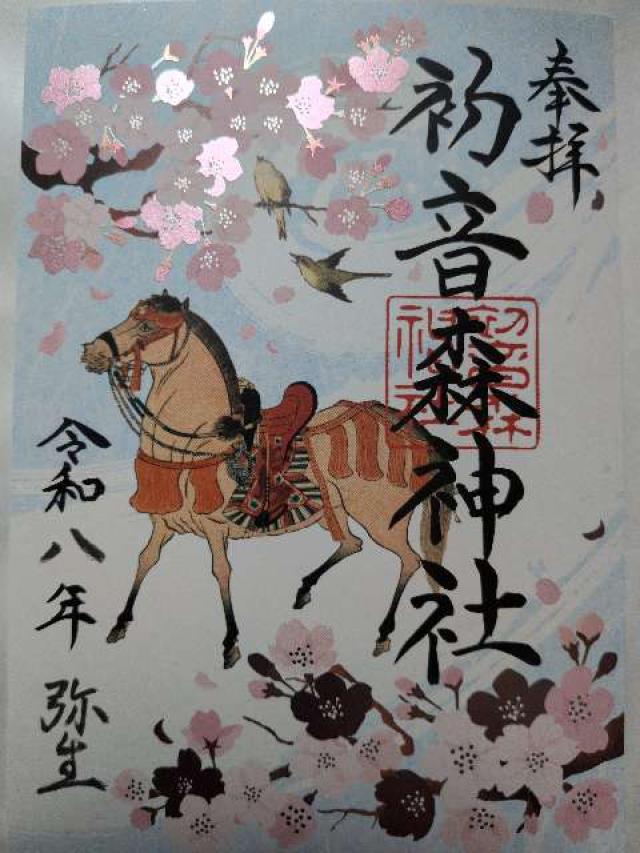 奉拝
初音森神社
初音森
神社
令和八年 弥生